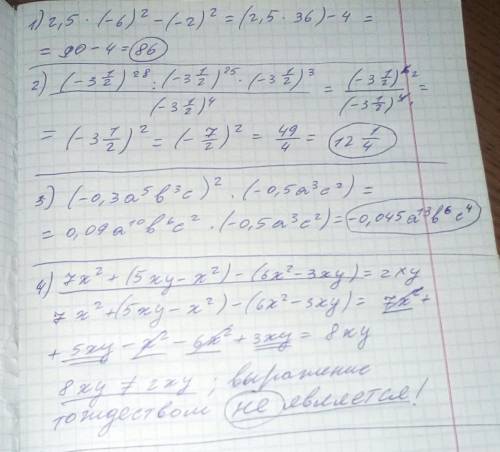 1) 2,5 · (-6)² - (-2)² = (2,5 · 36) - 4 =
= 90 - 4 = 86
2) (-3 1/2)²⁸ : (-3 1/2)²⁵ · (-3 1/2)³ / (-3 1/2)⁴ = (-3 1/2)⁶ ² / (-3 1/2)⁴ =
= (-3 1/2)² = (-7/2)² = 49/4 = 12 1/4
3) (-0,3a⁵b³c)² · (-0,5a³c²) =
= 0,09a¹⁰b⁶c² · (-0,5a³c²) = -0,045a¹³b⁶c⁴
4) 7x² + (5xy - x²) - (6x² - 3xy) = 2xy
7x² + (5xy - x²) - (6x² - 3xy) = 7x² +
+ 5xy - x² - 6x² + 3xy = 8xy
8xy ≠ 2xy ; выражение
тождеством не является!